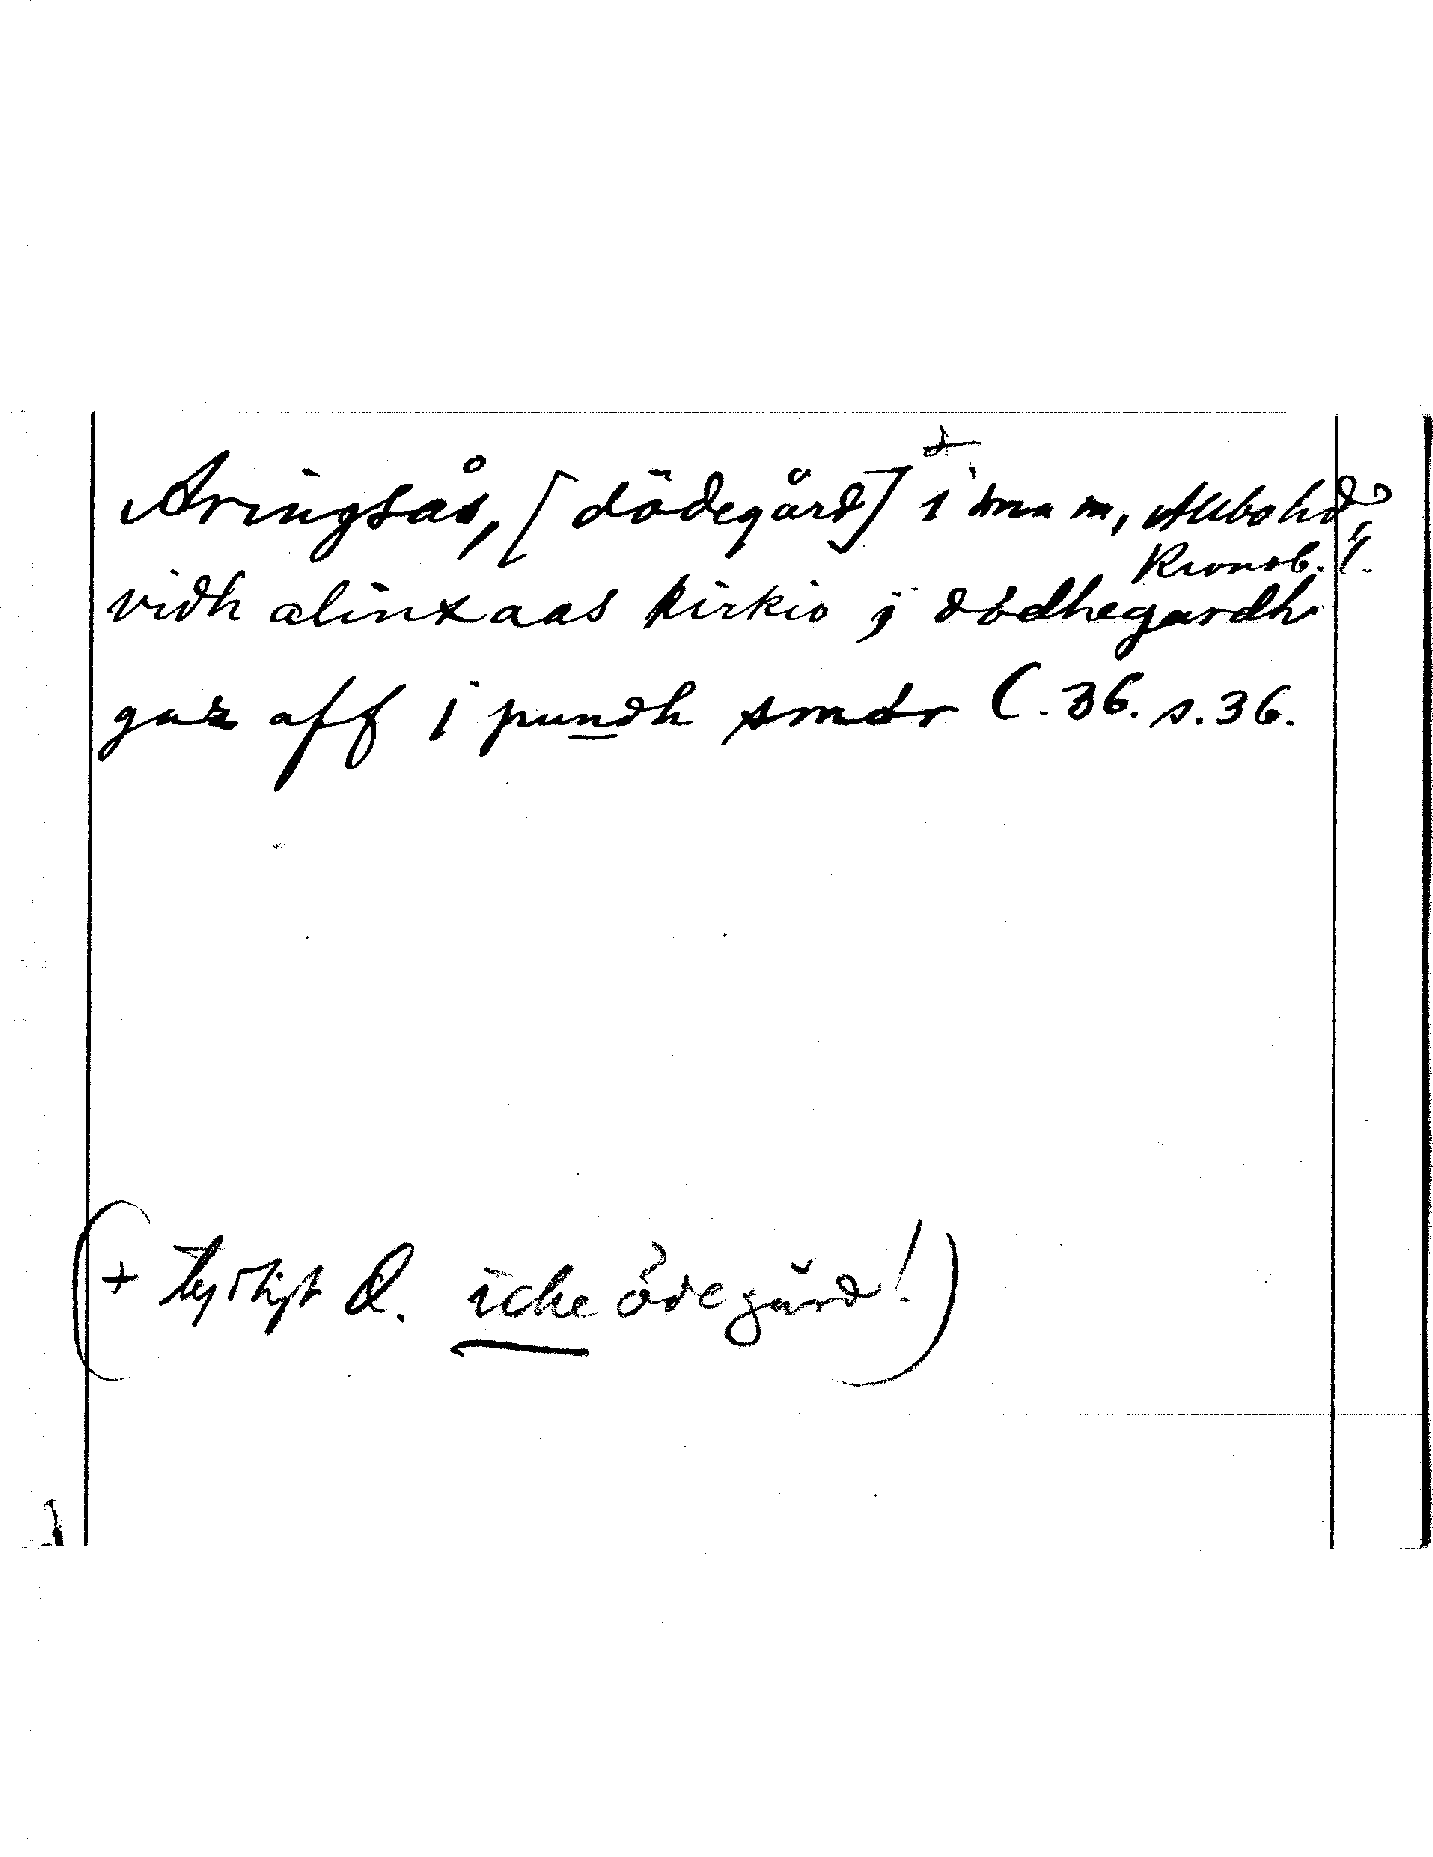 Aringsås, [dödegård] + i sma m, Allbo hd,
Kronob. l.
vidh alinxaas kirkio j dödhegardh
gaz aff j pundh smör C. 36. s. 36.
(+ tydligt d. icke ödegård!)